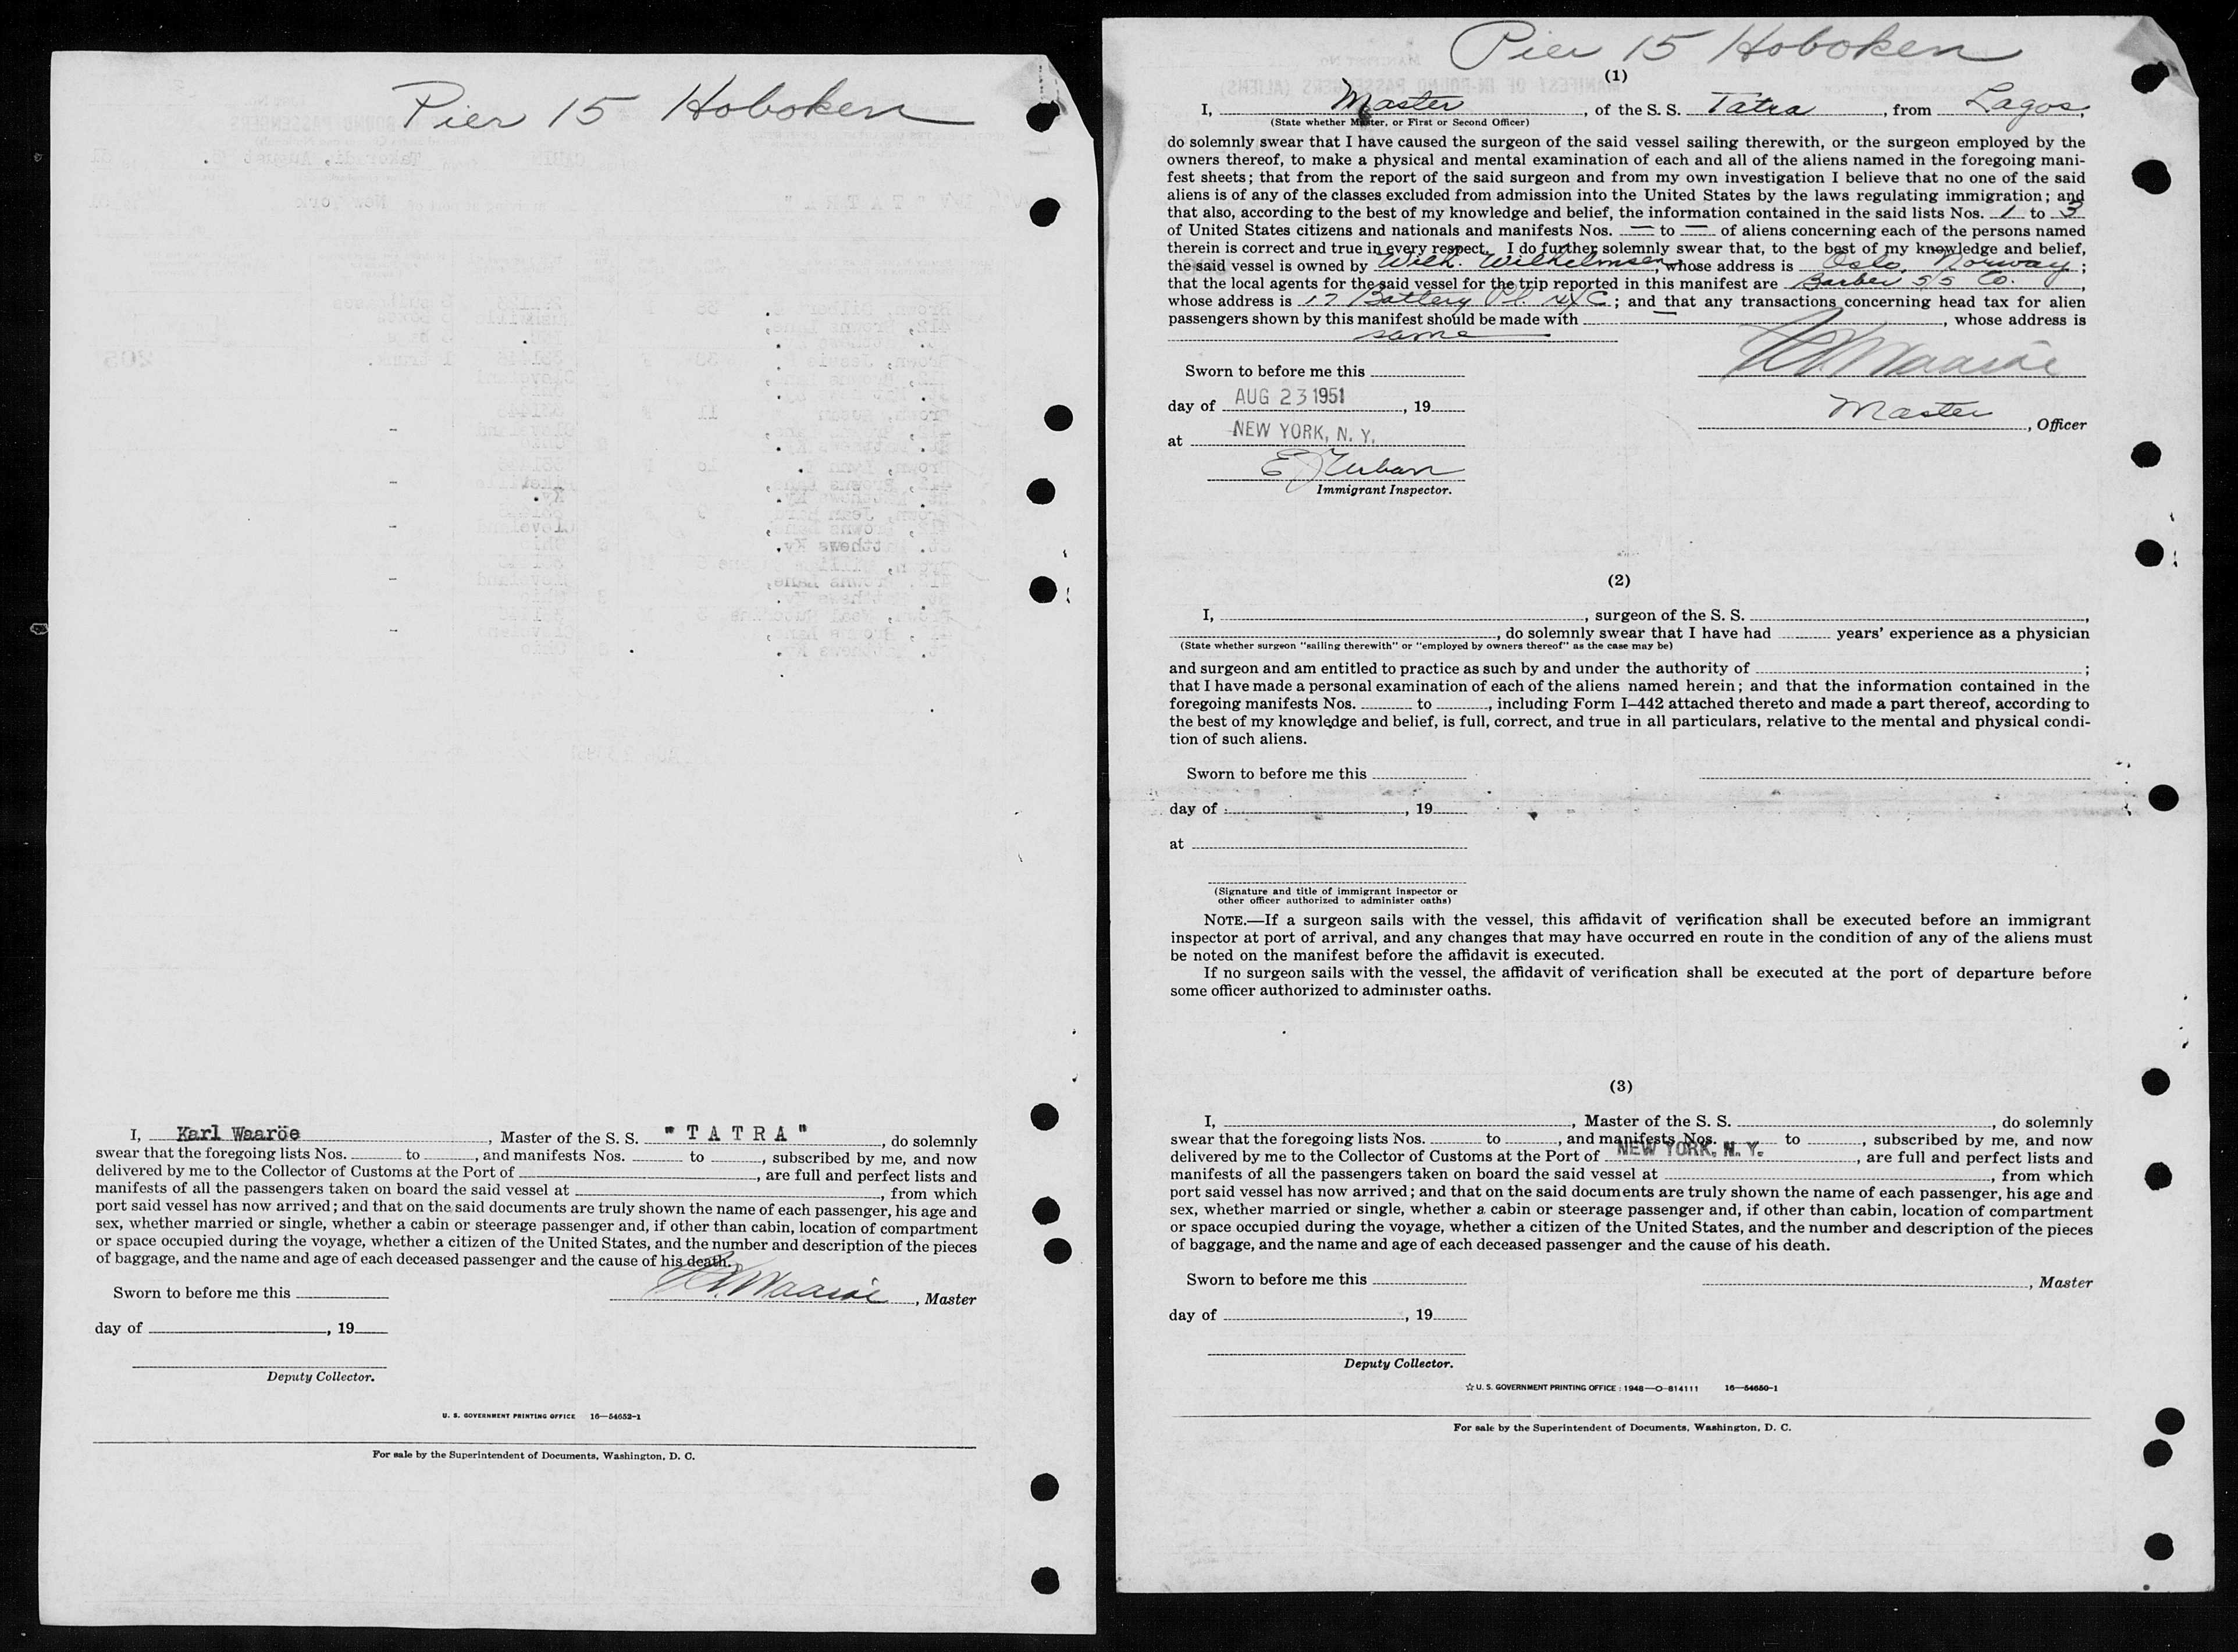 Pier 15 Hoboken
I, Karl Waaröe, Master of the S. S. "TATRA", do solemnly
swear that the foregoing lists Nos. to , and manifests Nos. to , subscribed by me, and now
delivered by me to the Collector of Customs at the Port of , are full and perfect lists and
manifests of all the passengers taken on board the said vessel at , from which
port said vessel has now arrived; and that on the said documents are truly shown the name of each passenger, his age and
sex, whether married or single, whether a cabin or steerage passenger and, if other than cabin, location of compartment
or space occupied during the voyage, whether a citizen of the United States, and the number and description of the pieces
of baggage, and the name and age of each deceased passenger and the cause of his death.
Sworn to before me this
Waaröe, Master
day of , 19
Deputy Collector.
U. S. GOVERNMENT PRINTING OFFICE 16—54652-1
For sale by the Superintendent of Documents, Washington, D. C.
Pier 15 Hoboken
(1)
I, Master, of the S. S. Tatra, from Lagos,
(State whether Master, or First or Second Officer)
do solemnly swear that I have caused the surgeon of the said vessel sailing therewith, or the surgeon employed by the
owners thereof, to make a physical and mental examination of each and all of the aliens named in the foregoing mani-
fest sheets; that from the report of the said surgeon and from my own investigation I believe that no one of the said
aliens is of any of the classes excluded from admission into the United States by the laws regulating immigration; and
that also, according to the best of my knowledge and belief, the information contained in the said lists Nos. 1 to 3
of United States citizens and nationals and manifests Nos. — to — of aliens concerning each of the persons named
therein is correct and true in every respect. I do further solemnly swear that, to the best of my knowledge and belief,
the said vessel is owned by Wilh. Wilhelmsen, whose address is Oslo, Norway;
that the local agents for the said vessel for the trip reported in this manifest are Barber S/S Co.,
whose address is 17 Battery Pl. NYC; and that any transactions concerning head tax for alien
passengers shown by this manifest should be made with —, whose address is
same
Sworn to before me this
Waaröe
day of AUG 23 1951, 19
Master, Officer
at NEW YORK, N. Y.
E J Urban
Immigrant Inspector.
(2)
I, , surgeon of the S. S. ,
, do solemnly swear that I have had years' experience as a physician
(State whether surgeon "sailing therewith" or "employed by owners thereof" as the case may be)
and surgeon and am entitled to practice as such by and under the authority of ;
that I have made a personal examination of each of the aliens named herein; and that the information contained in the
foregoing manifests Nos. to , including Form I–442 attached thereto and made a part thereof, according to
the best of my knowledge and belief, is full, correct, and true in all particulars, relative to the mental and physical condi-
tion of such aliens.
Sworn to before me this
day of , 19
at
(Signature and title of immigrant inspector or
other officer authorized to administer oaths)
NOTE.—If a surgeon sails with the vessel, this affidavit of verification shall be executed before an immigrant
inspector at port of arrival, and any changes that may have occurred en route in the condition of any of the aliens must
be noted on the manifest before the affidavit is executed.
If no surgeon sails with the vessel, the affidavit of verification shall be executed at the port of departure before
some officer authorized to administer oaths.
(3)
I, , Master of the S. S. , do solemnly
swear that the foregoing lists Nos. to , and manifests Nos. to , subscribed by me, and now
delivered by me to the Collector of Customs at the Port of NEW YORK, N. Y., are full and perfect lists and
manifests of all the passengers taken on board the said vessel at , from which
port said vessel has now arrived; and that on the said documents are truly shown the name of each passenger, his age and
sex, whether married or single, whether a cabin or steerage passenger and, if other than cabin, location of compartment
or space occupied during the voyage, whether a citizen of the United States, and the number and description of the pieces
of baggage, and the name and age of each deceased passenger and the cause of his death.
Sworn to before me this
, Master
day of , 19
Deputy Collector.
☆ U. S. GOVERNMENT PRINTING OFFICE : 1948—O-814111 16—54650-1
For sale by the Superintendent of Documents, Washington, D. C.